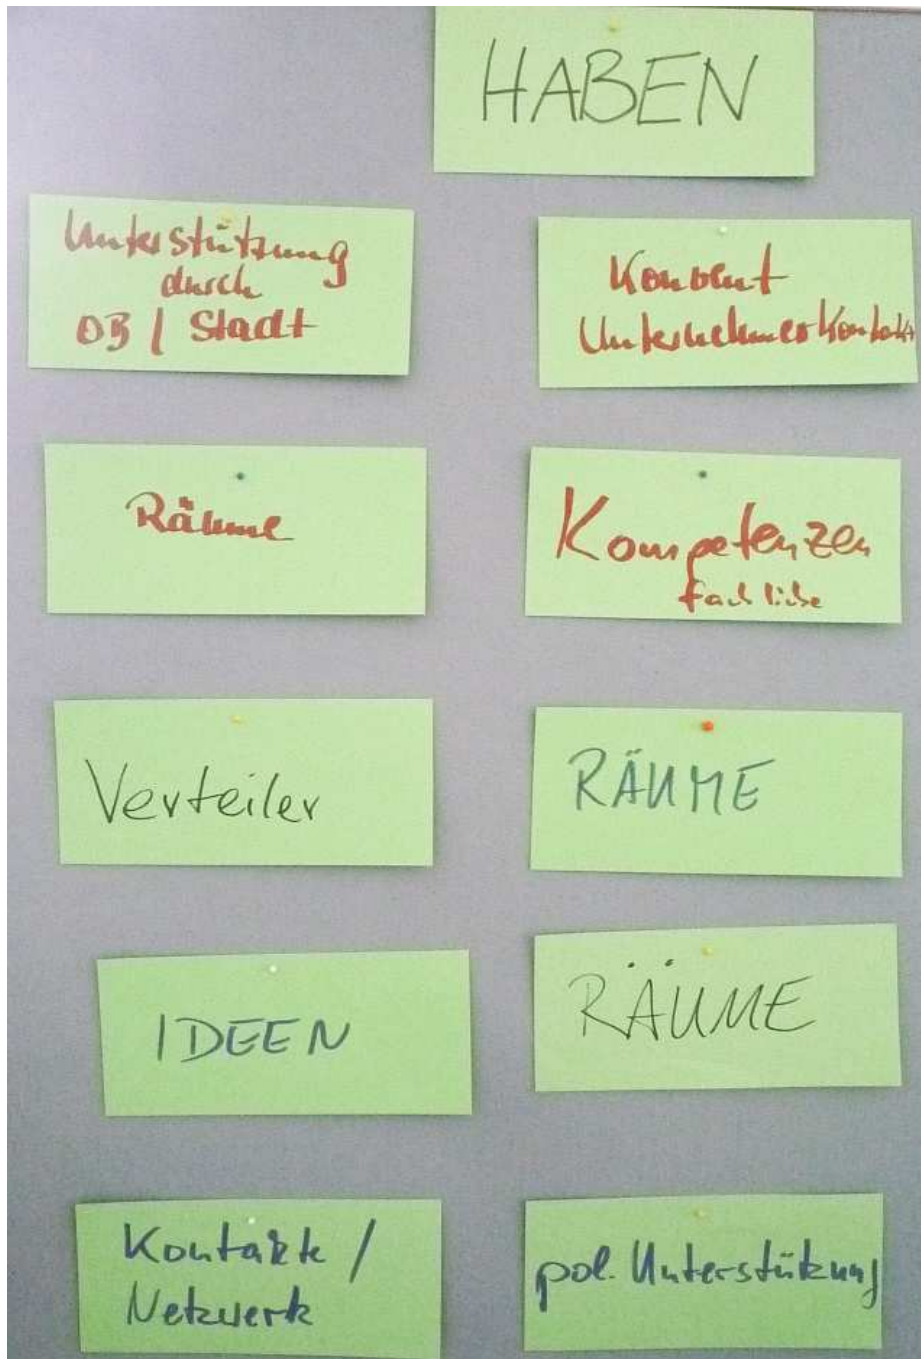 HABEN
Unterstützung
durch
OB / Stadt
Konvent
Unternehmerkontakte
Räume
Kompetenzen
fachliche
Verteiler
RÄUME
IDEEN
RÄUME
Kontakte /
Netzwerk
pol. Unterstützung